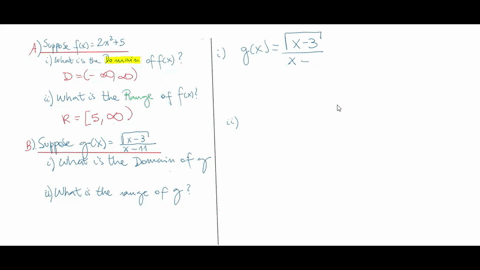 A) Suppose f(x) = 2x²+5
i) What is the Domain of f(x)?
D = (-∞,∞)
ii) What is the Range of f(x)?
R = [5,∞)
B) Suppose g(x) = √(x-3) / (x-11)
i) What is the Domain of g
ii) What is the range of g?
i) g(x) = √(x-3) / (x-
ii)